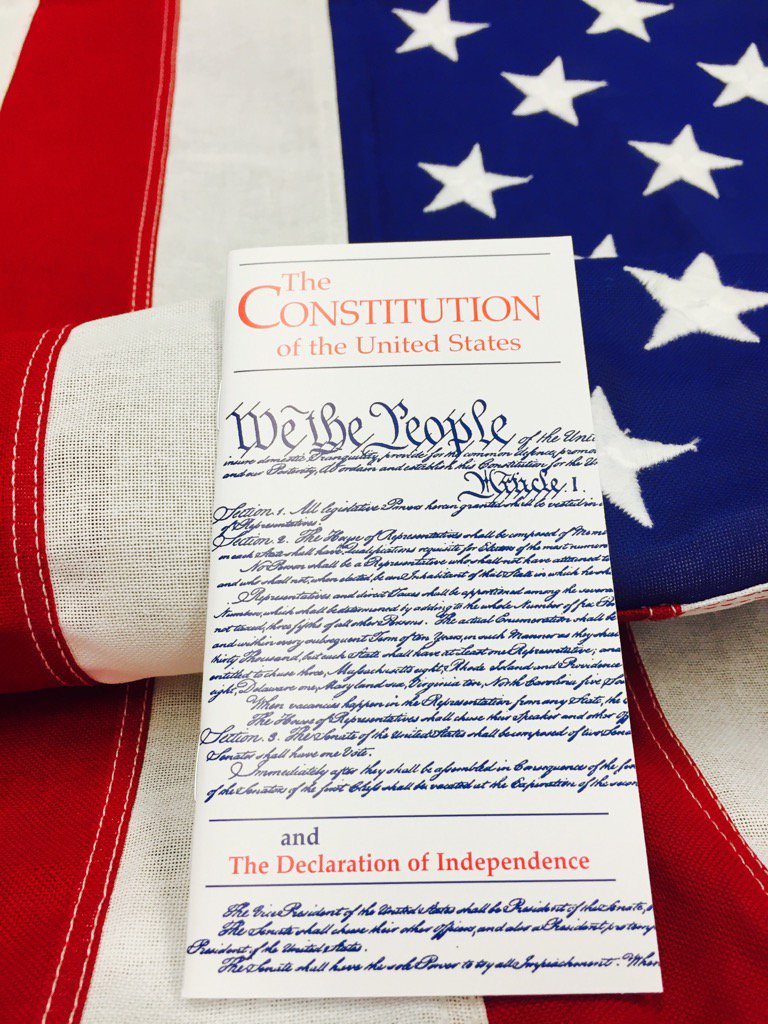 The
CONSTITUTION
of the United States
We the People of the Uni
insure domestic Tranquility, provide for the common defence, promo
and our Posterity, do ordain and establish this Constitution for the U
Article. I.
Section. 1. All legislative Powers herein granted shall be vested in
of Representatives.
Section. 2. The House of Representatives shall be composed of Mem
in each State shall have the Qualifications requisite for Electors of the most numero
No Person shall be a Representative who shall not have attained to
and who shall not, when elected, be an Inhabitant of that State in which he sha
Representatives and direct Taxes shall be apportioned among the severa
Numbers, which shall be determined by adding to the whole Number of free Pe
not taxed, three fifths of all other Persons. The actual Enumeration shall be
and within every subsequent Term of ten Years, in such Manner as they sha
thirty Thousand, but each State shall have at Least one Representative; and
entitled to chuse three, Massachusetts eight, Rhode Island and Providence
eight, Delaware one, Maryland six, Virginia ten, North Carolina five, Sou
When vacancies happen in the Representation from any State, the
The House of Representatives shall chuse their Speaker and other Off
Section. 3. The Senate of the United States shall be composed of two Sena
Senator shall have one Vote.
Immediately after they shall be assembled in Consequence of the first
of the Senators of the first Class shall be vacated at the Expiration of the secon
and
The Declaration of Independence
The Vice President of the United States shall be President of the Senate,
The Senate shall chuse their other Officers, and also a President pro temp
President of the United States.
The Senate shall have the sole Power to try all Impeachments. When